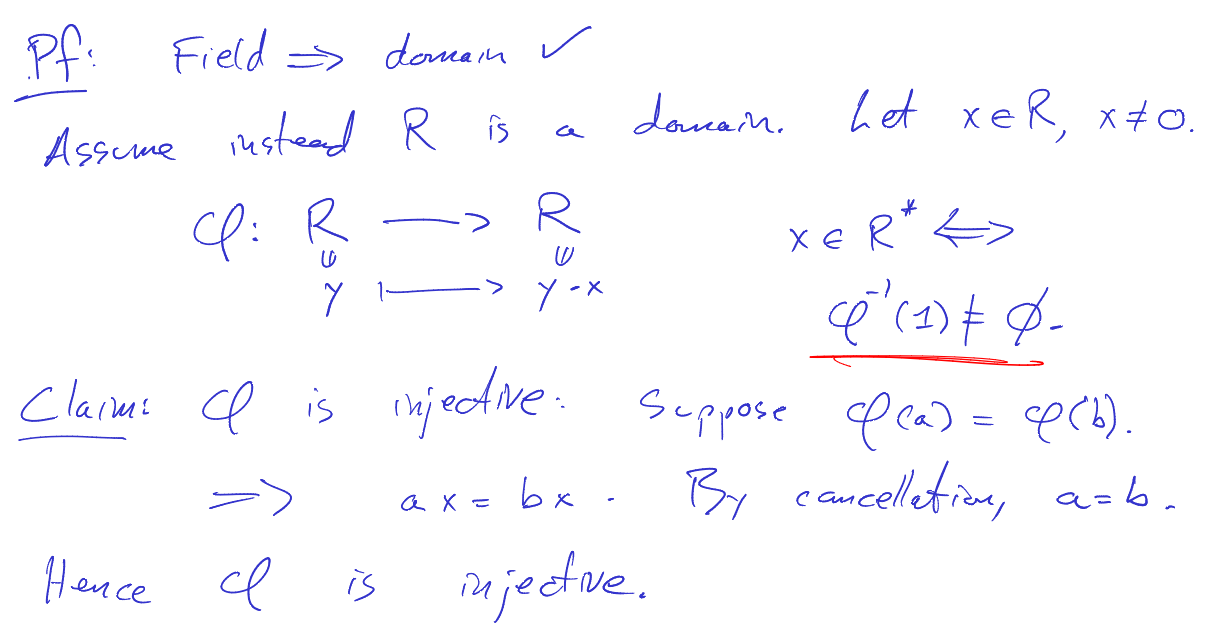 Pf: Field ⇒ domain ✓
Assume instead R is a domain. Let x ∈ R, x ≠ 0.
φ: R ⟶ R x ∈ R* ⟺
y ⟼ y·x φ⁻¹(1) ≠ ∅.
Claim: φ is injective. Suppose φ(a) = φ(b).
⇒ ax = bx. By cancellation, a = b.
Hence φ is injective.